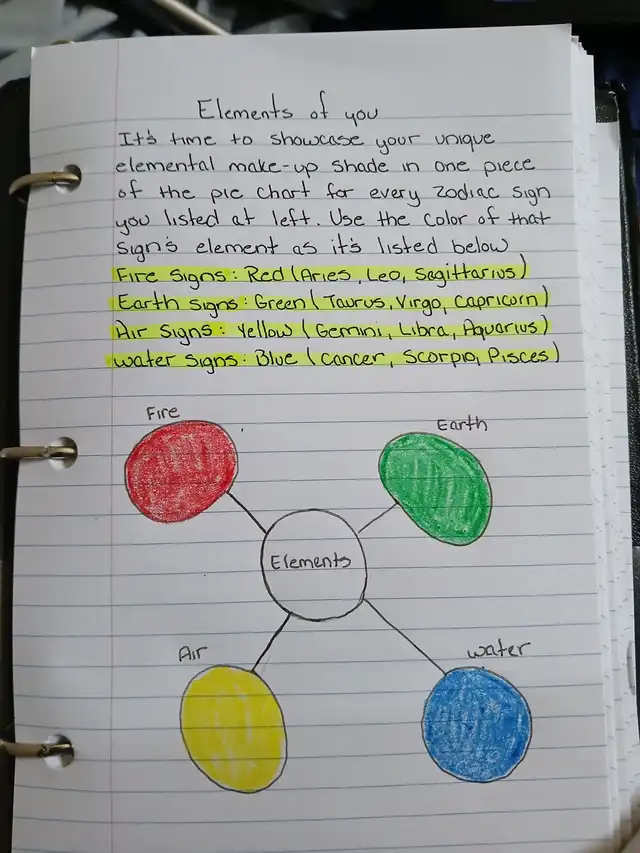 Elements of you
It's time to showcase your unique
elemental make-up shade in one piece
of the pie chart for every Zodiac sign
you listed at left. Use the Color of that
Sign's element as it's listed below
Fire Signs: Red (Aries, Leo, Sagittarius)
Earth signs: Green (Taurus, Virgo, Capricorn)
Air Signs: Yellow (Gemini, Libra, Aquarius)
Water Signs: Blue (Cancer, Scorpio, Pisces)
Fire
Earth
Elements
Air
Water